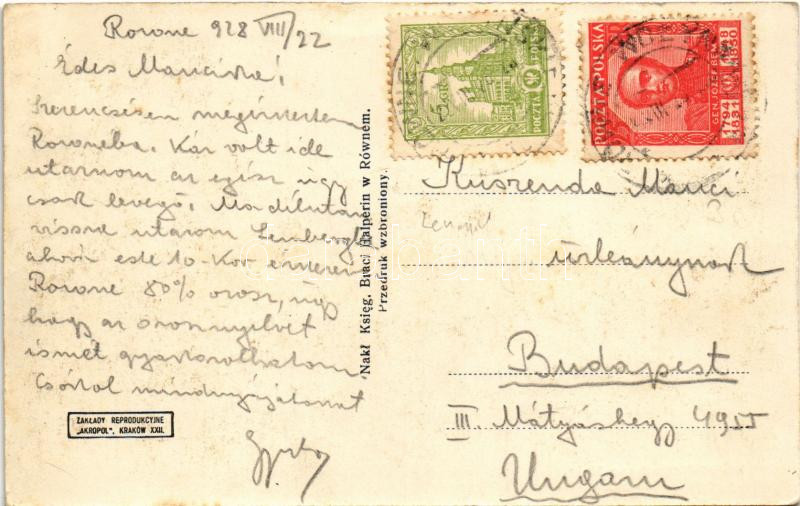 Rowne 928 VIII/22
Édes Mancika!
Szerencsésen megérkeztem
Rowneba. Kár volt ide
utaznom az egész úgy
csak levegő. Ma délután
vissza utazom Lemberg
ahova este 10-kor érkezem
Rowne 80% orosz, úgy
hogy az orosz nyelvet
ismét gyakorolhatom
Csókol mindnyájatokat
ZAKŁADY REPRODUKCYJNE
„AKROPOL", KRAKÓW XXII.
Nakł Księg. Braci Halperin w Równem.
Przedruk wzbroniony.
POCZTA POLSKA
GEN. JÓZEF BEM
1794 1928
1850
Kuszenda Manci
úrleánynak
Budapest
III. Mátyáshegy 4955
Ungarn